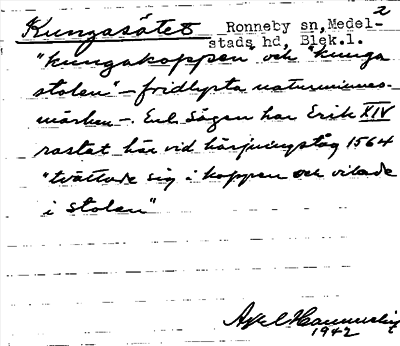 2
Kungasätet Ronneby sn, Medel-
stads hd, Blek.l.
"kungakoppen och "kunga
stolen" - fridlysta naturminnes-
märken -. Enl. Sägen har Erik XIV
rastat här vid härjningståg 1564
"tvättade sig i koppen och vilade
i stolen"
Axel
1942